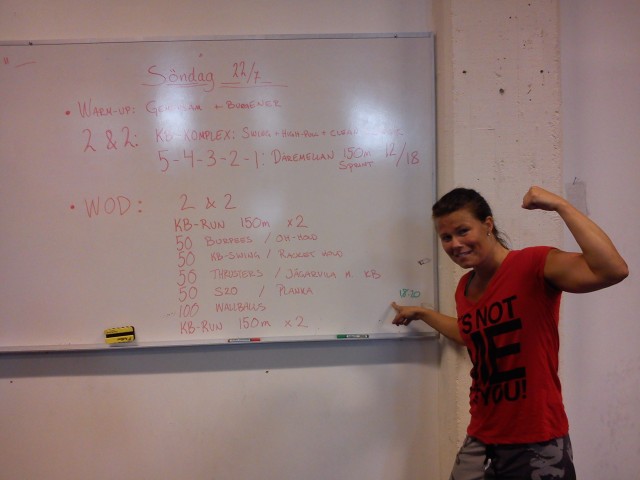 Söndag 22/7
• WARM-UP: GEMENSAM + BURGENER
2 & 2: KB-KOMPLEX: SWING + HIGH-PULL + CLEAN
5-4-3-2-1: DÄREMELLAN 150m SPRINT 12/18
• WOD: 2 & 2
KB-RUN 150m x2
50 BURPEES / OH-HOLD
50 KB-SWING / RACKET HOLD
50 THRUSTERS / JÄGARVILA M. KB
50 SZO / PLANKA
100 WALLBALLS
KB-RUN 150m x2
18:20
NOT
ME
YOU!